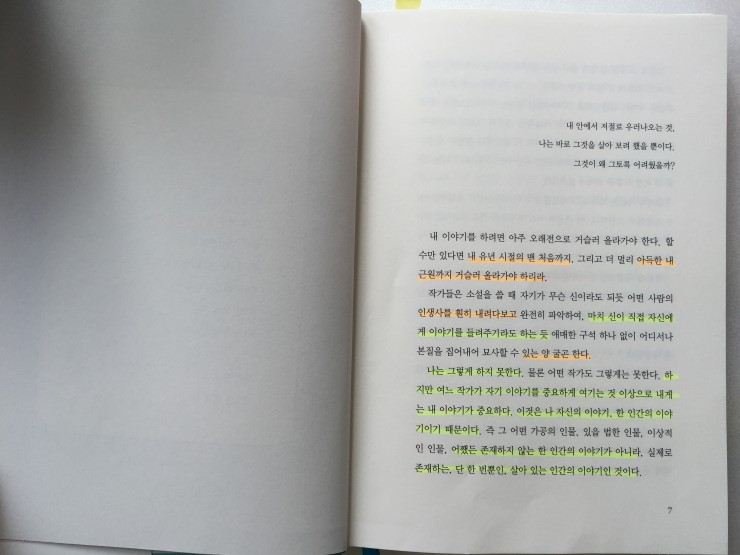 내 안에서 저절로 우러나오는 것.
나는 바로 그것을 살아 보려 했을 뿐이다.
그것이 왜 그토록 어려웠을까?
내 이야기를 하려면 아주 오래전으로 거슬러 올라가야 한다. 할
수만 있다면 내 유년 시절의 맨 처음까지, 그리고 더 멀리 아득한 내
근원까지 거슬러 올라가야 하리라.
작가들은 소설을 쓸 때 자기가 무슨 신이라도 되듯 어떤 사람의
인생사를 훤히 내려다보고 완전히 파악하여, 마치 신이 직접 자신에
게 이야기를 들려주기라도 하는 듯 애매한 구석 하나 없이 어디서나
본질을 집어내어 묘사할 수 있는 양 굴곤 한다.
나는 그렇게 하지 못한다. 물론 어떤 작가도 그렇게는 못한다. 하
지만 여느 작가가 자기 이야기를 중요하게 여기는 것 이상으로 내게
는 내 이야기가 중요하다. 이것은 나 자신의 이야기, 한 인간의 이야
기이기 때문이다. 즉 그 어떤 가공의 인물, 있을 법한 인물, 이상적
인 인물, 어쨌든 존재하지 않는 한 인간의 이야기가 아니라, 실제로
존재하는, 단 한 번뿐인, 살아 있는 인간의 이야기인 것이다.
7